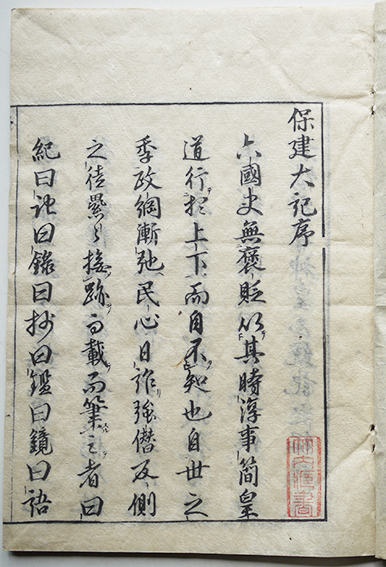 保建大記序
六國史無褒貶以其時淳事簡皇
道行於上下而自不知也自世之
季政綱漸弛民心日詐強僭反側
之徒纍々接跡載而筆之者曰
紀曰記曰錄曰抄曰鑑曰鏡曰語